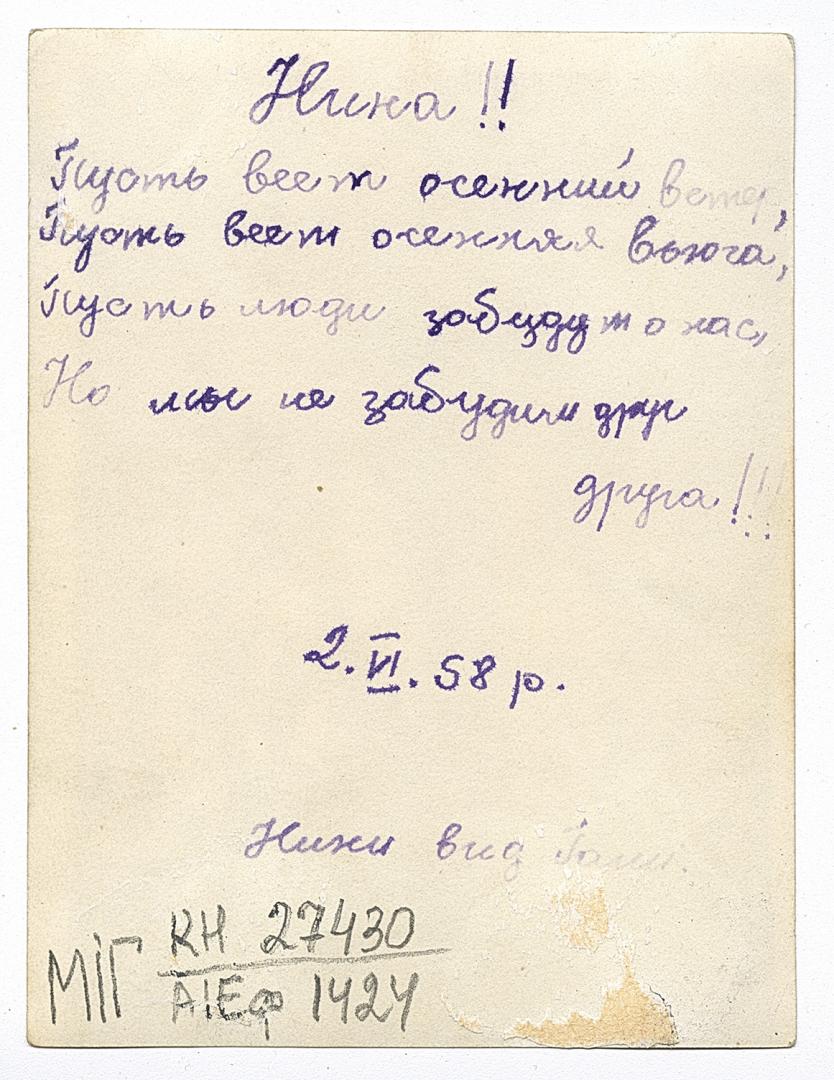 Нина!!
Пусть веет осенний ветер,
Пусть веет осенняя вьюга,
Пусть люди забудут о нас,
Но мы не забудим друг
друга!!!
2. VI. 58 р.
Нини від Гали.
МІГ КН 27430
АІЕф 1424